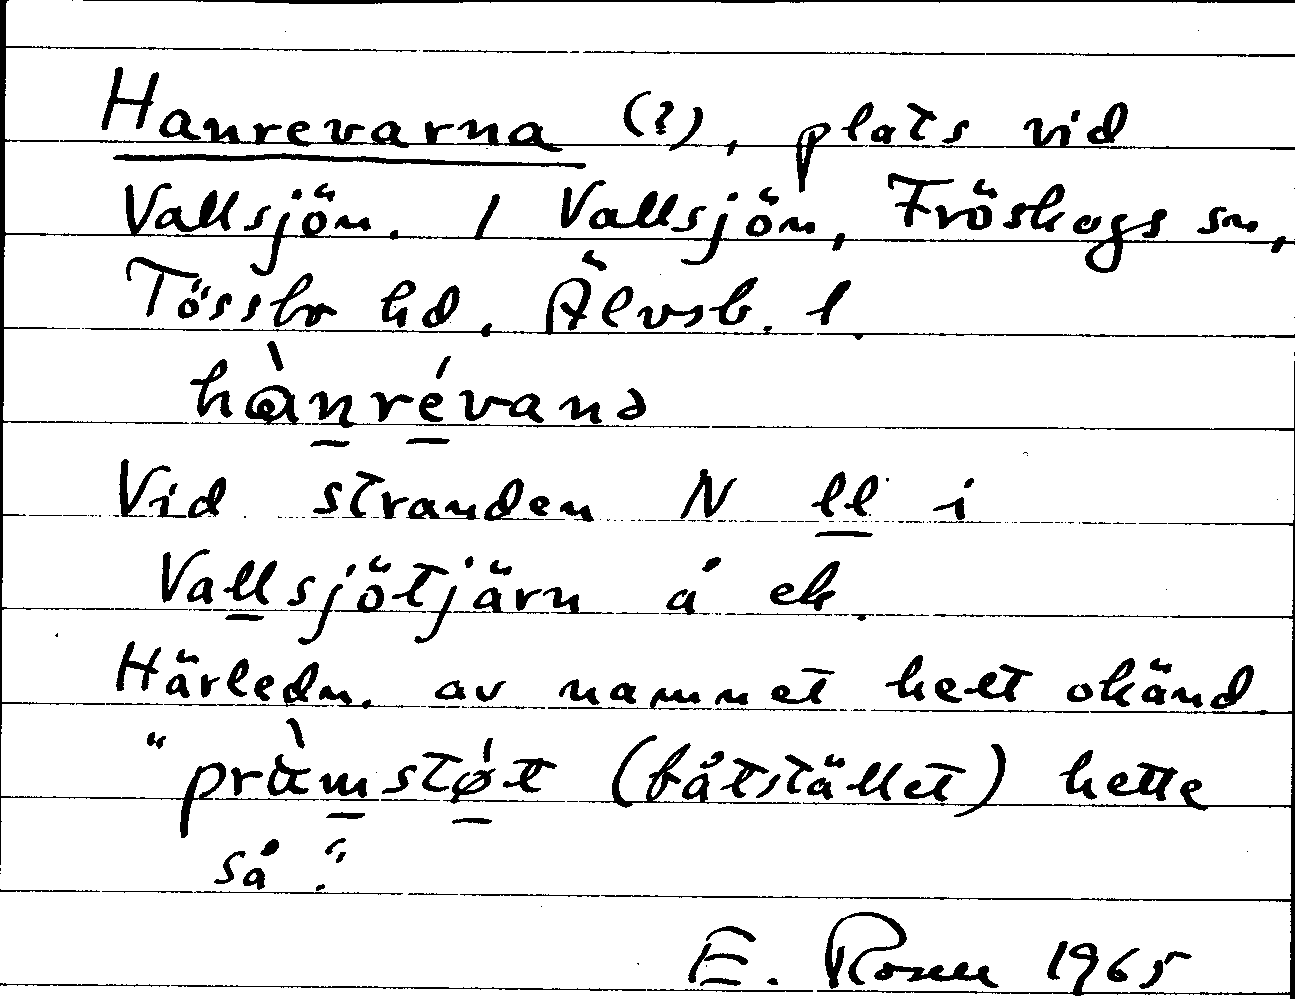 Hanrevarna (?), plats vid
Vallsjön. / Vallsjön, Fröskogs sn,
Tössbo hd. Älvsb. l.
hànrévanə
Vid stranden N ll i
Vallsjötjärn å ek.
Härledn. av namnet helt okänd.
"pràmstǿt (båtstället) hette
så."
E. Rosen 1965